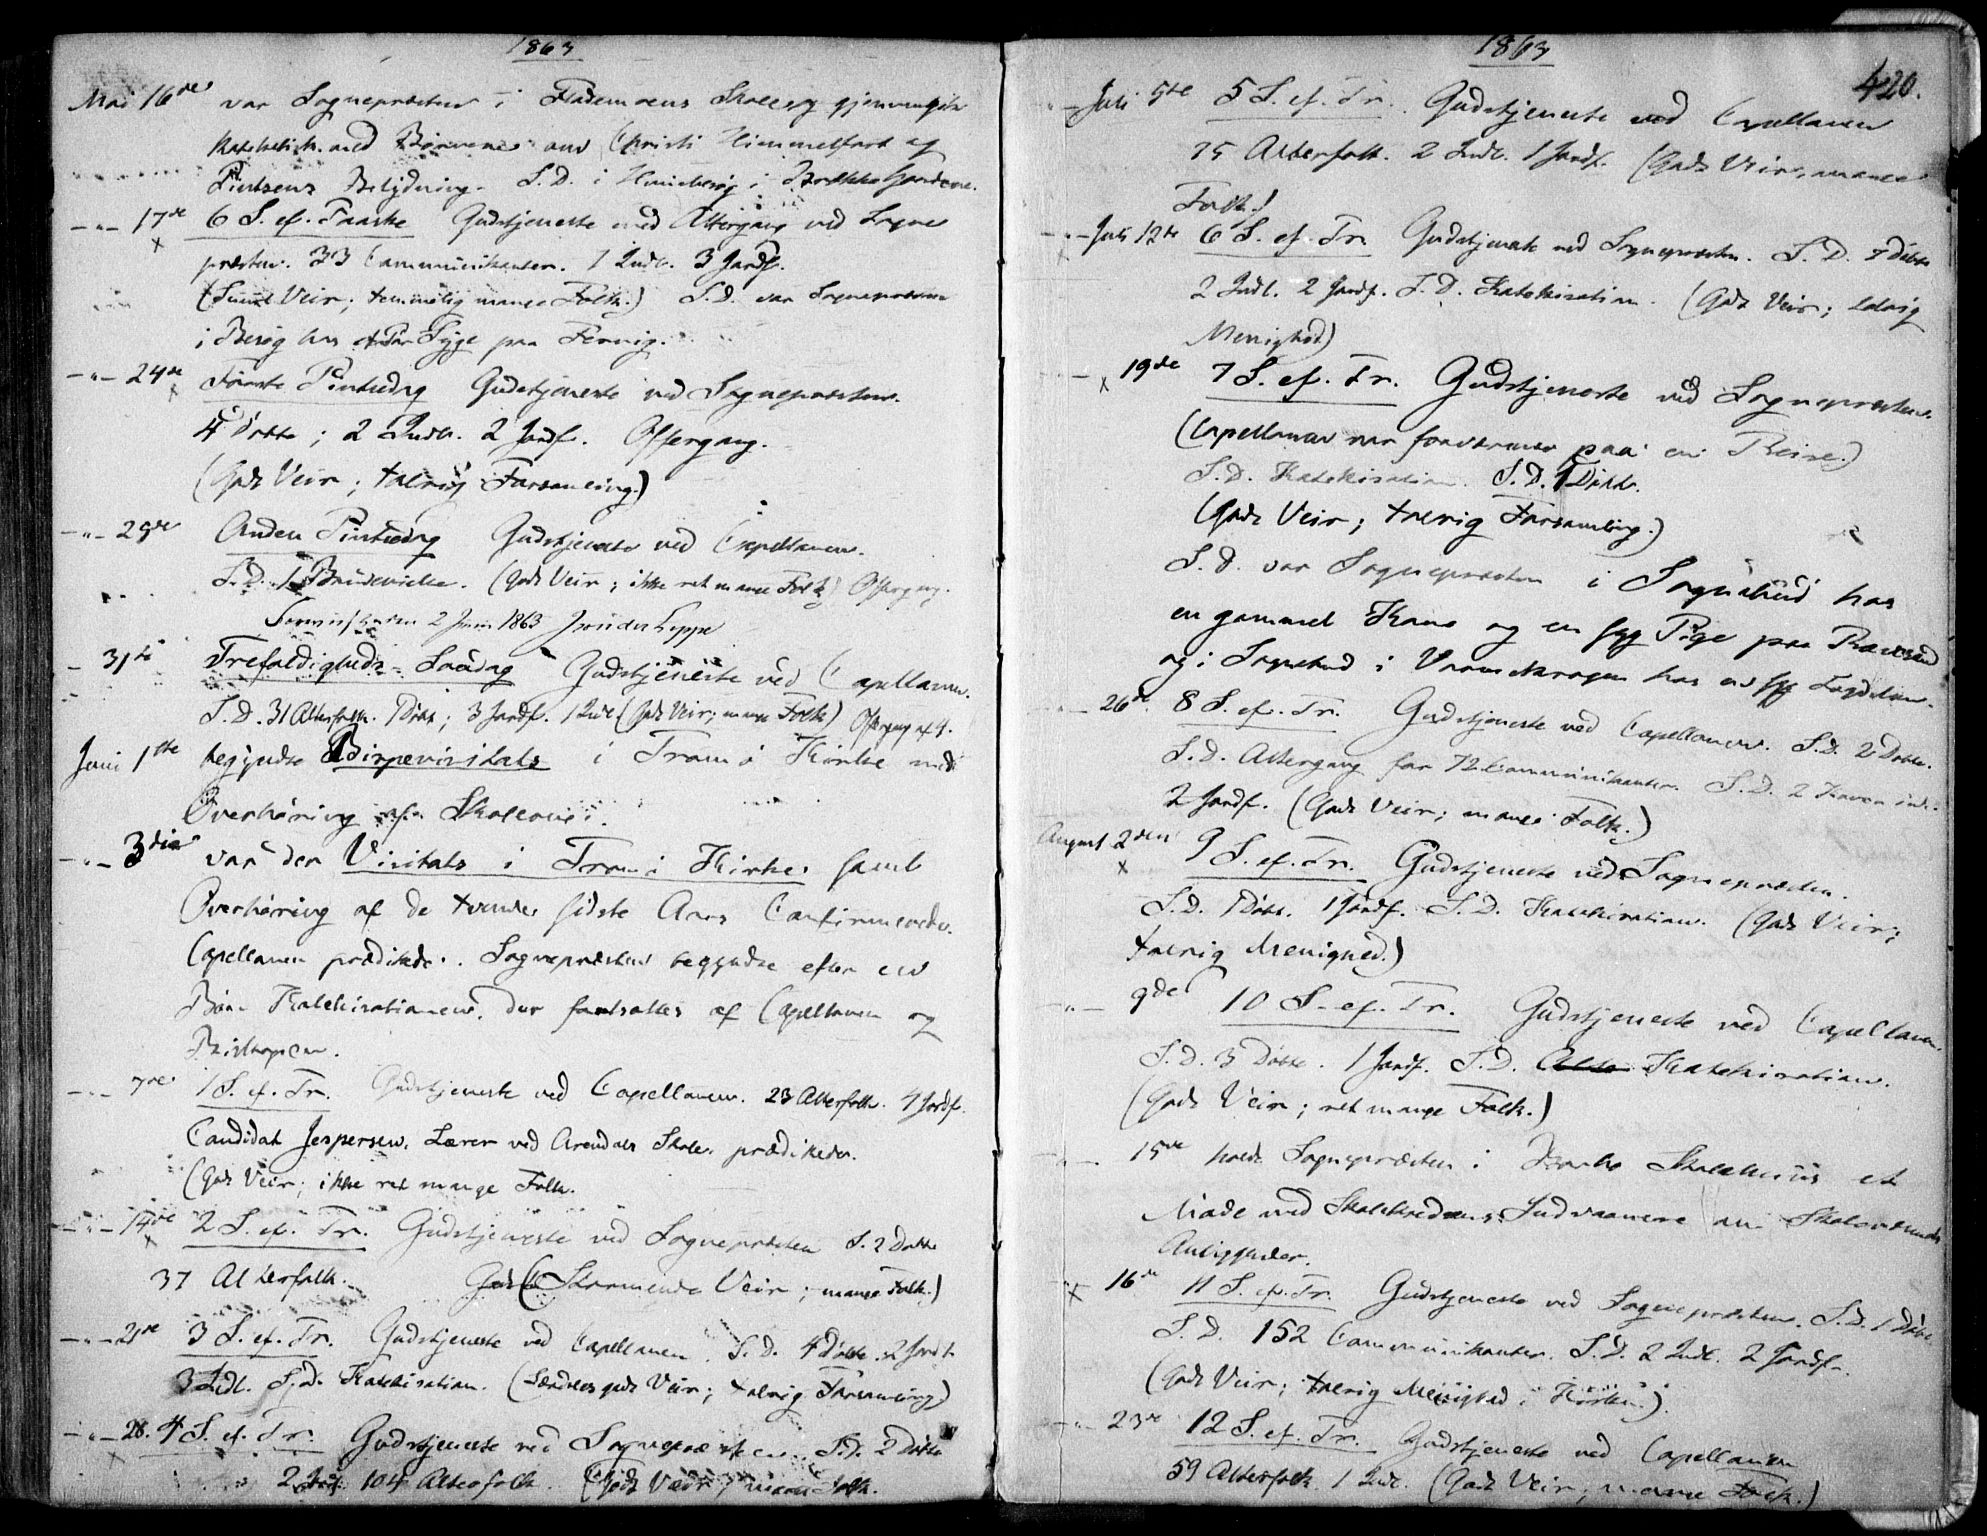 1863
Mai 16de var Sognepræsten i Flademoens Skole og gjennemgik
Katechetisk med Børnene om Christi Himmelfart og
Pintsens Betydning. S.D. i
17de 6 S. ef. Paaske Gudstjeneste med Altergang ved Sogne
præsten. 33 Communikanter. 1 Indl. 3 Jordf.
(Smukt Veir; temmelig mange Folk.) S.D. var Sognepræsten
i Besøg hos Syge paa
24de Første Pintsedag Gudstjeneste ved Sognepræsten.
4 Døbte; 2 Indl. 2 Jordf. Offergang.
(Godt Veir; talrig Forsamling.)
25de Anden Pintsedag Gudstjeneste ved Capellanen.
S.D. 1 Brudevielse. (Godt Veir; ikke ret mange Folk) Offergang.
2 Juni 1863
31te Trefoldigheds-Søndag Gudstjeneste ved Capellanen.
S.D. 31 Alterfolk. 1 Døbt; 3 Jordf. 1 Indl. (Godt Veir; mange Folk)
Juni 1ste begyndte Bispevisitats i Tromø Kirke med
Overhøring af Skolerne.
3die var der Visitats i Tromø Kirke samt
Overhøring af de tvende sidste Aars Confirmerede.
Capellanen prædikede. Sognepræsten begyndte efter en
Bøn Katekisationen, der fortsattes af Capellanen og
Biskopen.
7de 1 S. ef. Tr. Gudstjeneste ved Capellanen. 23 Alterfolk. 4 Jordf.
Candidat Jespersen, Lærer ved Arendals Skole, prædikede.
(Godt Veir; ikke ret mange Folk.
14de 2 S. ef. Tr. Gudstjeneste ved Sognepræsten S. 2 Døbte
37 Alterfolk. Veir; mange Folk.)
21de 3 S. ef. Tr. Gudstjeneste ved Capellanen. S.D. 4 Døbte. 2 Jordf.
3 Indl. S.D. Katekisation. (Særdeles godt Veir; talrig Forsamling)
28. 4 S. ef. Tr. Gudstjeneste ved Sognepræsten. S.D. 2 Døbte
2 104 Alterfolk. (Godt Vedr; mange Folk.
1863
420.
Juli 5te 5 S. ef. Tr. Gudstjeneste ved Capellanen
75 Alterfolk. 2 Indl. 1 Jordf. (Godt Veir, mange
Folk.)
Juli 12te 6 S. ef. Tr. Gudstjeneste ved Sognepræsten. S.D. Døbte
2 Indl. 2 Jordf. S.D. Katekisation. (Godt Veir; talrig
Menighed)
19de 7 S. ef. Tr. Gudstjeneste ved Sognepræsten.
(Capellanen var fraværende paa en Reise.)
S.D. Katekisation. S.D. 1 Døbt.
(Godt Veir; talrig Forsamling.)
S.D. var Sognepræsten i Sognebud hos
en gammel Kone og en syg Pige paa
og i Sognebud i hos en syg
26de 8 S. ef. Tr. Gudstjeneste ved Capellanen. S.D. 2 Døbte.
S.D. Altergang for 72 Communikanter. S.D. 2 Koner indl.
2 Jordf. (Godt Veir; mange Folk.)
August 2den 9 S. ef. Tr. Gudstjeneste ved Sognepræsten.
S.D. 1 Døbt. 1 Jordf. S.D. Katekisation. (Godt Veir;
talrig Menighed.)
9de 10 S. ef. Tr. Gudstjeneste ved Capellanen.
S.D. 3 Døbte. 1 Jordf. S.D. Katekisation.
(Godt Veir; ret mange Folk.)
15de holdt Sognepræsten i Skolehuus et
Møde med Skolekredsens Indvaanere om Skolevæsenets
Anliggender.
16de 11 S. ef. Tr. Gudstjeneste ved Sognepræsten. S.D. 1 Døbt.
S.D. 152 Communikanter. S.D. 2 Indl. 2 Jordf.
(Godt Veir; talrig Menighed i Kirken.)
23de 12 S. ef. Tr. Gudstjeneste ved Capellanen
59 Alterfolk. 1 Indl. (Godt Veir; mange Folk.)